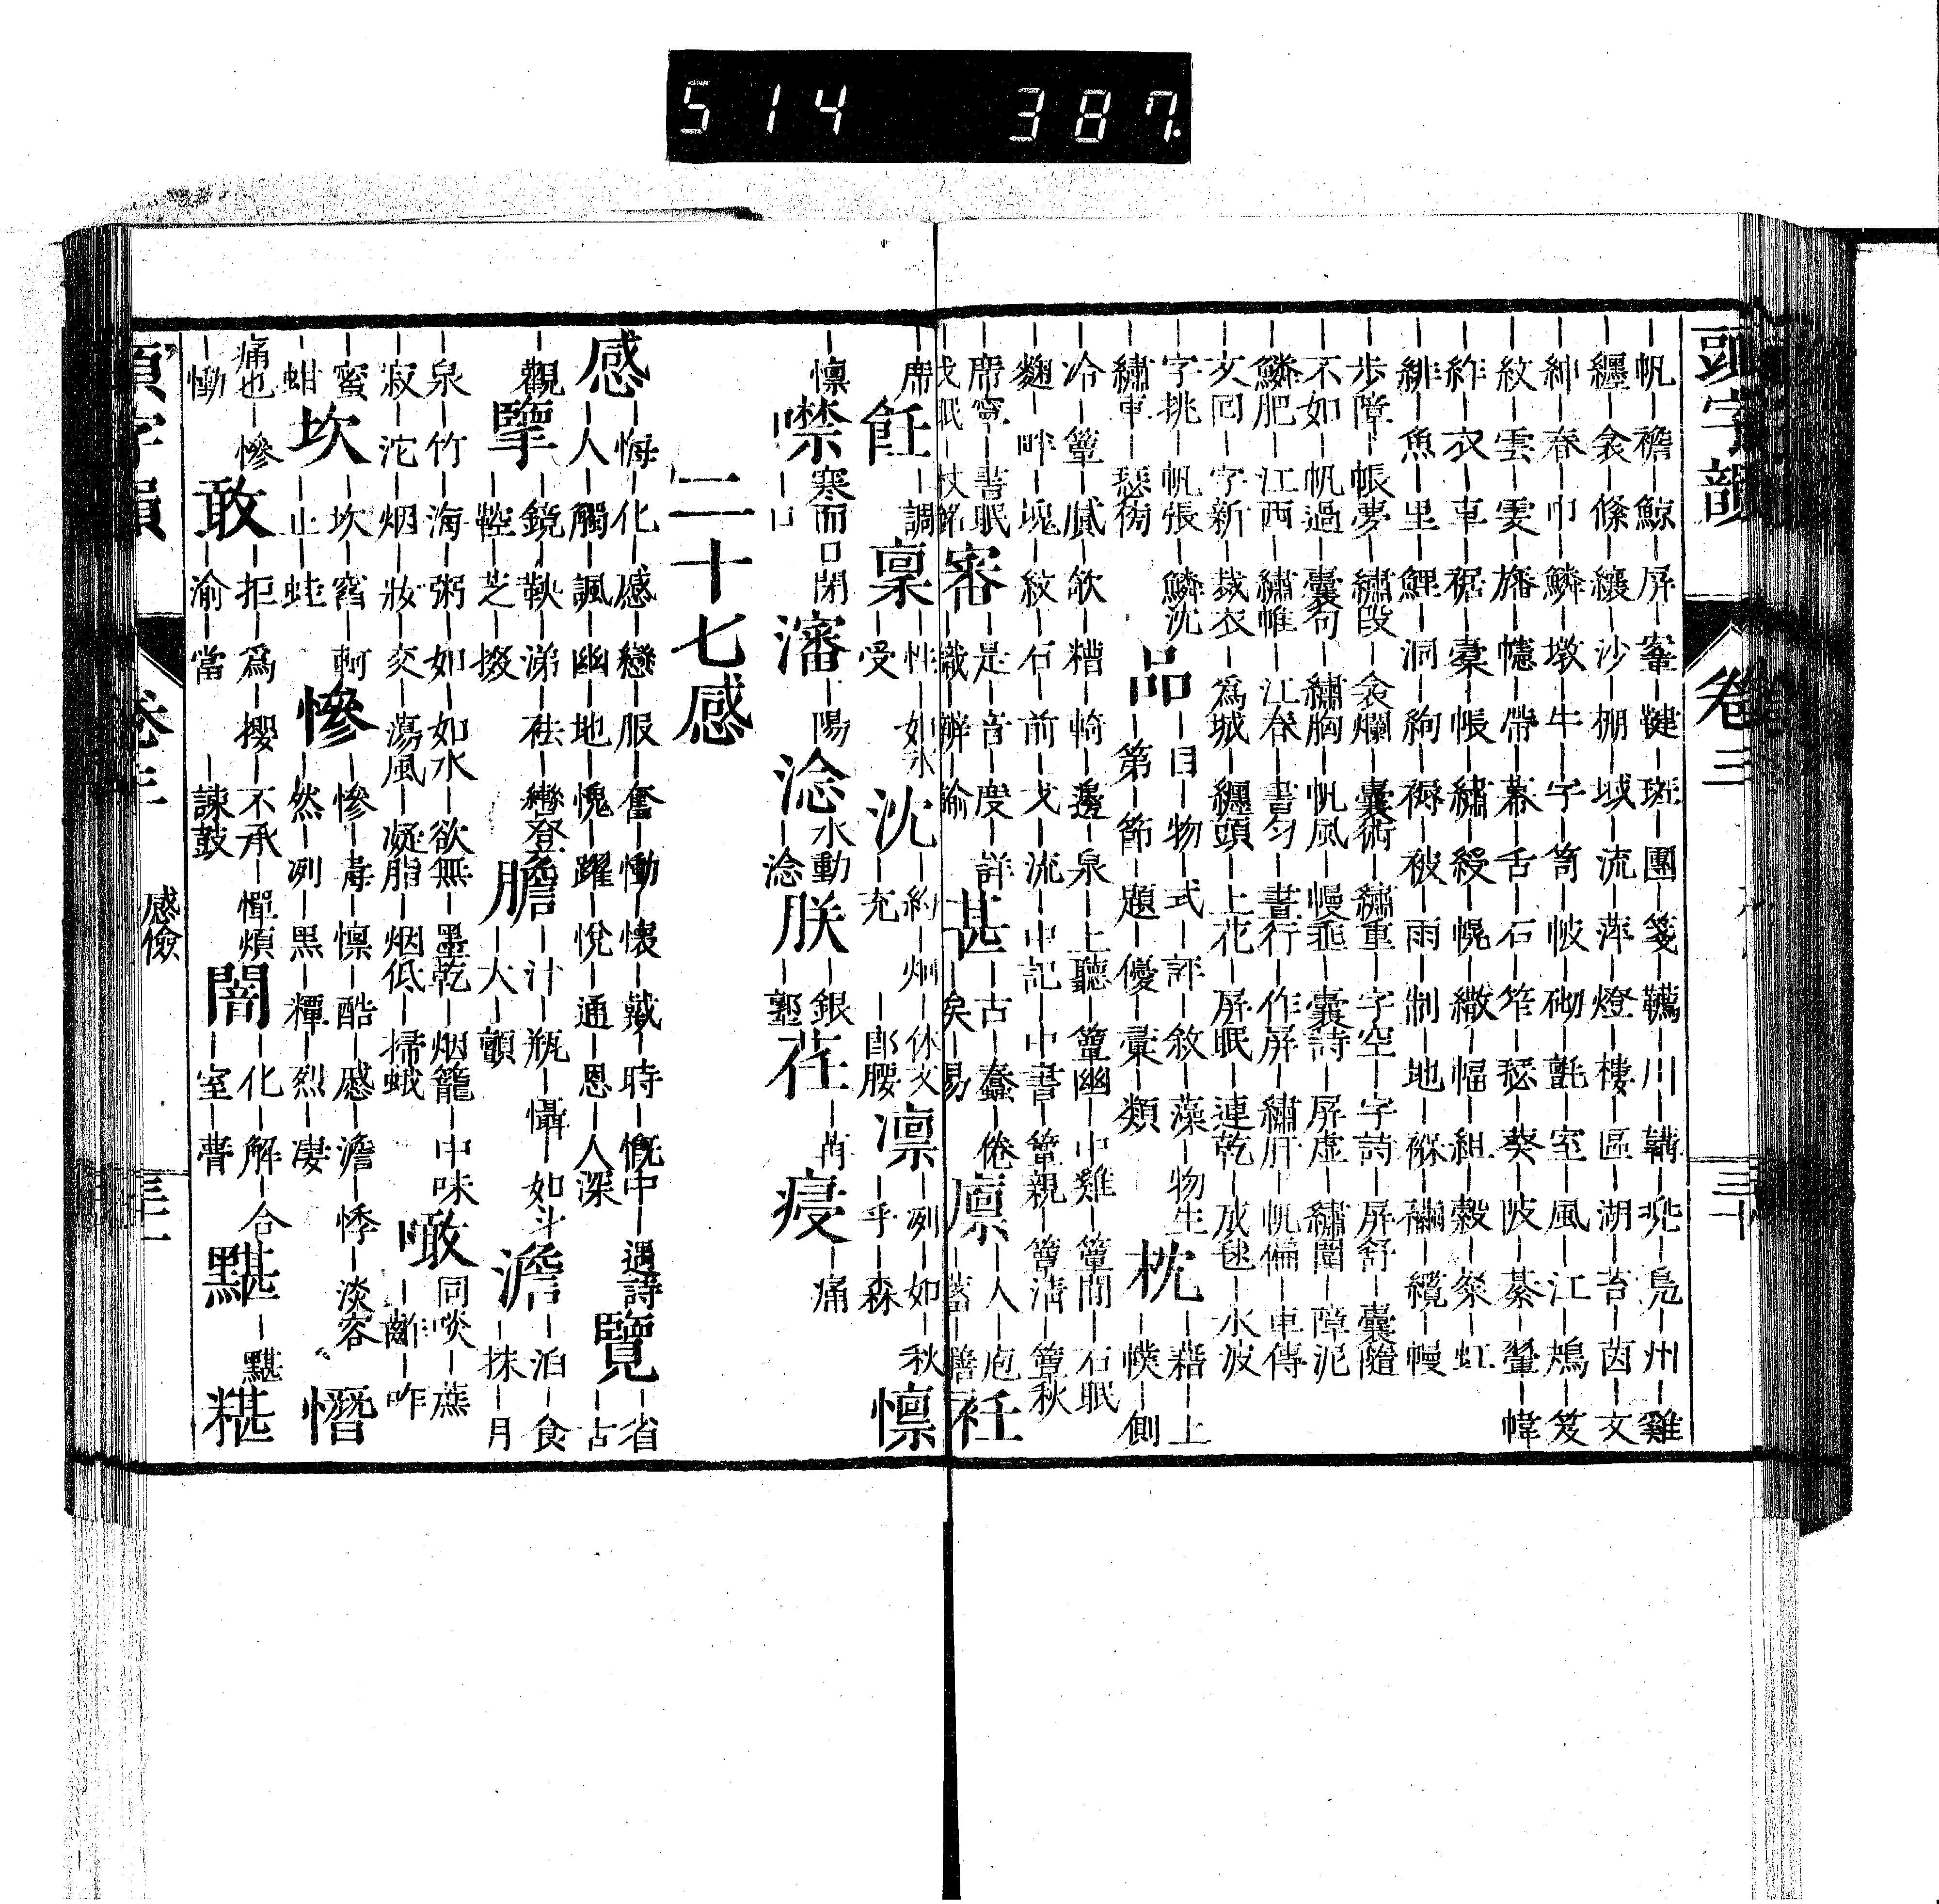 514 387
頭字韻 卷三
｜帆｜襜｜鯨｜屏｜｜鞬｜斑｜團｜箋｜韉｜川｜韝｜兆｜鳧｜州｜雞
｜纒｜衾｜絛｜纕｜沙｜棚｜域｜流｜萍｜燈｜樓｜區｜湖｜苔｜茵｜文
｜紳｜春｜巾｜鱗｜墩｜牛｜字｜笥｜帔｜砌｜氈｜室｜風｜江｜鴂｜笈
｜紋｜雲｜雯｜旛｜幰｜帶｜幕｜舌｜石｜笮｜瑟｜葵｜陂｜綦｜翬｜幃
｜紨｜衣｜車｜裾｜橐｜帳｜繡｜綬｜幌｜繖｜幅｜組｜縠｜粲｜虹
｜緋｜魚｜里｜鯉｜洞｜絢｜褥｜被｜雨｜制｜地｜褓｜襺｜纜｜幔
步障｜帳夢｜繡段｜衾爛｜囊術｜繡重｜字空｜字詩｜屏舒｜囊隨
不如｜帆過｜囊句｜繡胸｜帆風｜幔乖｜囊詩｜屏虛｜繡圍｜障泥
鱗肥｜江西｜繡帷｜江春｜書勻｜晝行｜作屏｜繡肝｜帆偏｜車傳
文回｜字新｜裁衣｜爲城｜纏頭｜上花｜屏眠｜連乾｜成毬｜水波
字挑｜帆張｜鱗沈 品｜目｜物｜式｜評｜敘｜藻｜物生 枕｜藉｜上
繡車｜瑟衖 第｜節｜題｜優｜彙｜類 幞｜側
｜冷｜簟｜膩｜飲｜糟｜㛂｜邊｜泉｜上聽｜簟幽｜中難｜簟間｜石眠
｜麴｜畔｜塊｜紋｜石｜前｜戈｜流｜中記｜中書｜簟親｜簟清｜簟秋
席寒｜書眠 審｜是｜音｜度｜詳 甚｜古｜蠢｜倦 廩｜人｜庖 衽
戈眠｜杖銘 識｜辨｜諭 矣｜易 蓄｜膳
｜席 飪｜調 稟｜性｜如水 沈｜約｜炯｜休文 凛｜冽｜如｜秋 懍
受 充｜郎腰 乎｜森
｜懍 噤 寒而口閉 瀋｜陽 淰 水動 朕｜銀 荏｜苒 㾛｜痛
｜口 淰｜郢
二十七感
感｜悔｜化｜感｜戀｜服｜奮｜慟｜懷｜戴｜時｜慨中｜遇詩 覽｜省
人｜觸｜諷｜幽｜地｜愧｜躍｜悅｜通｜恩｜人深 古
｜觀 擥｜鏡｜鞅｜涕｜袪｜轡登 膽｜汁｜瓶｜懾｜如斗 澹｜泊｜食
轡｜芝｜掇 大｜顫 抹｜月
｜泉｜竹｜海｜粥｜如｜如水｜欲無｜墨乾｜烟籠｜中味 噉 同啖｜蔗
｜寂｜沱｜烟｜妝｜交｜蕩風｜凝脂｜烟低｜掃蛾 齰｜咋
｜蜜 坎｜坎｜窞｜軻 慘｜慘｜毒｜懍｜酷｜慼｜澹｜悸｜淡容 憯
｜蚶 止｜蛙 然｜冽｜黑｜糲｜烈｜凄
痛也｜慘 敢｜拒｜爲｜攖｜不承｜憚煩 闇｜化｜解｜合 黮｜黮 糂
｜慟 渝｜當 諫鼓 室｜瞢
頭字韻 卷三 感儉 三十一